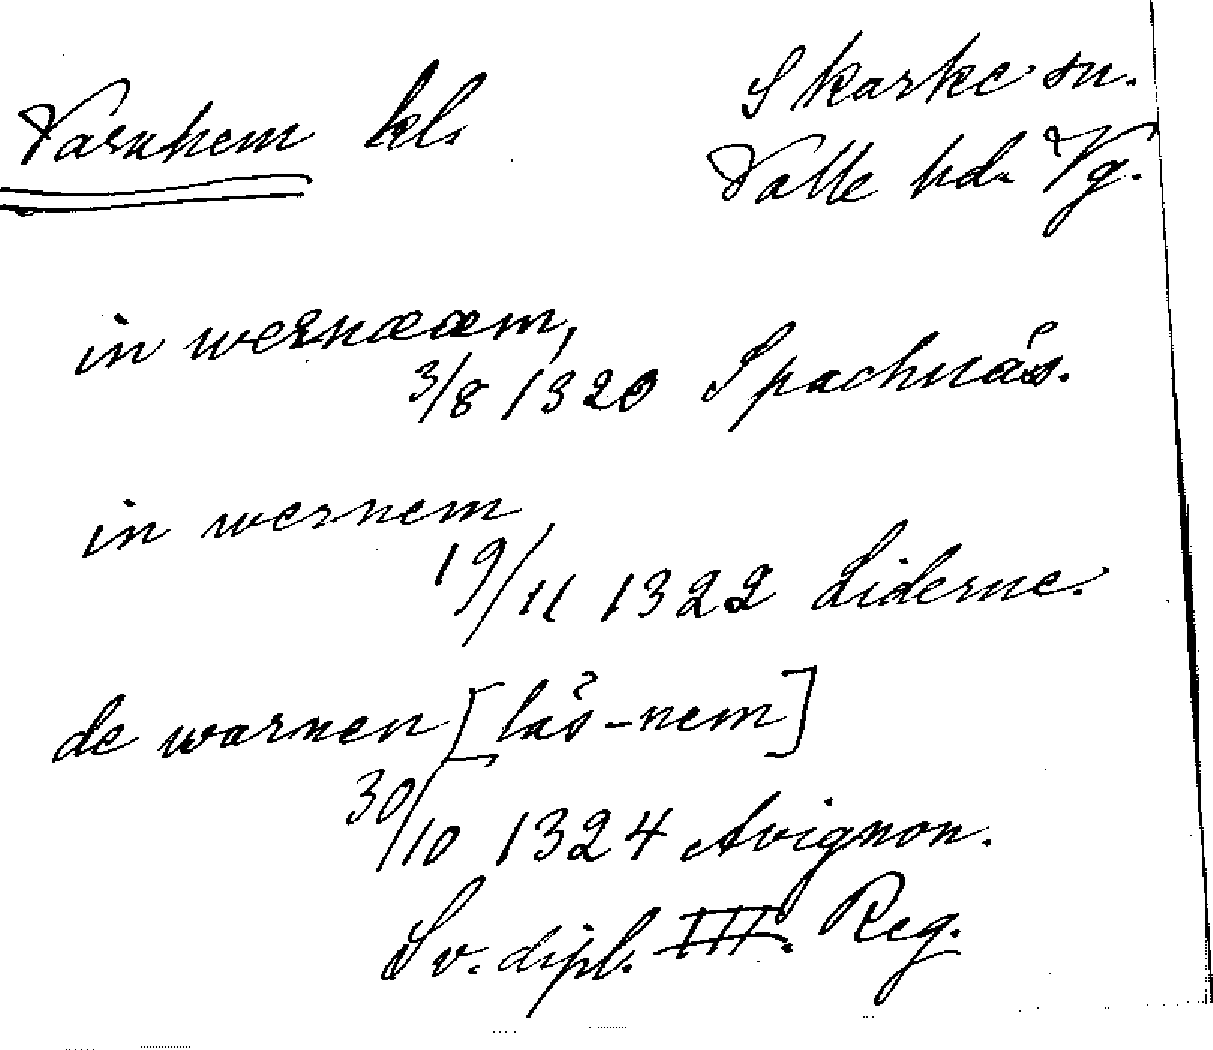 Varnhem kl.
Skarke sn.
Valle hd. Vg.
in wernææm,
3/8 1320 Spachnäs.
in wernem
19/11 1322 Liderne.
de warnen [läs -nem]
30/10 1324 Avignon.
Sv. dipl. III. Reg.